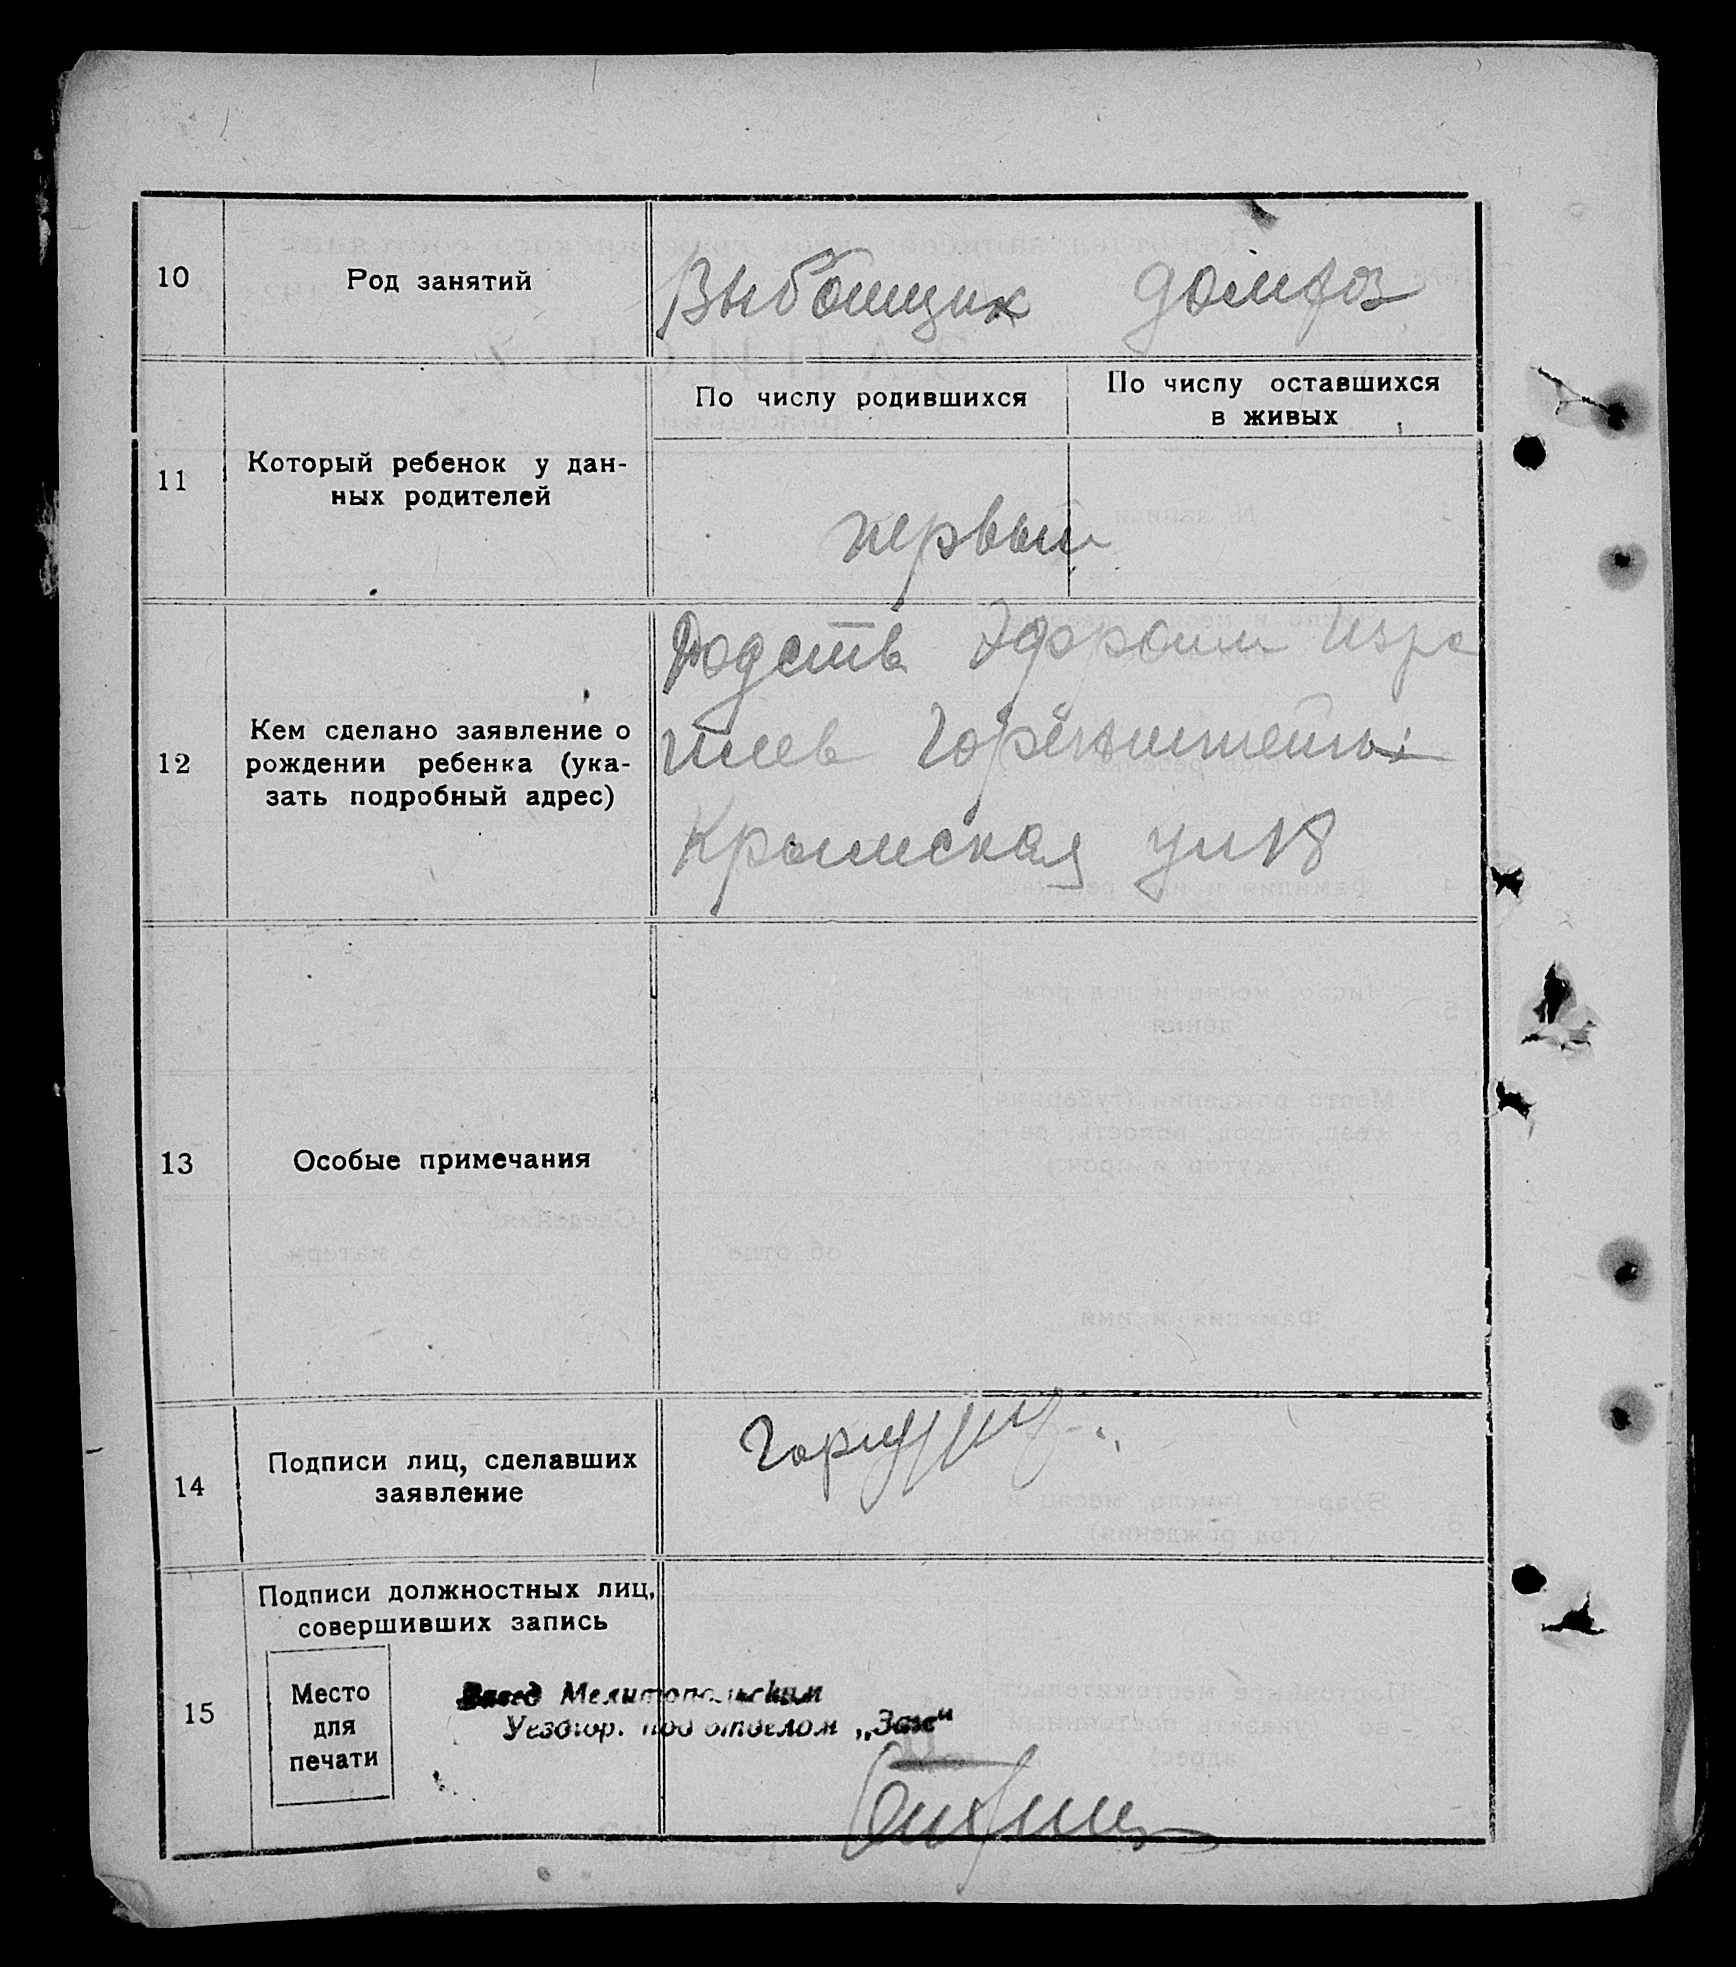 10 Род занятий Выбойщик домхоз
11 Который ребенок у дан-
ных родителей
По числу родившихся
По числу оставшихся
в живых
первый
12 Кем сделано заявление о
рождении ребенка (ука-
зать подробный адрес)
Родств Эфроим Изра
илев
Крымская ул 18
13 Особые примечания
14 Подписи лиц, сделавших
заявление
15 Подписи должностных лиц,
совершивших запись
Место
для
печати
Завед Мелитопольским
Уездгор. под отделом „Загс"